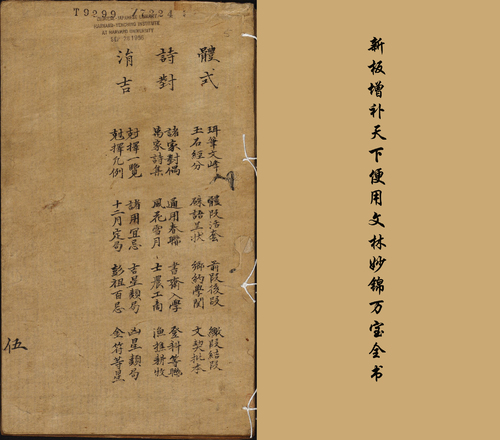 T9299 /7224
HARVARD-YENCHING INSTITUTE
AT HARVARD UNIVERSITY
體式
珥筆文峰 體段活套 前段後段 繳段結段
玉石經分 硃語呈狀 文契批本
詩對
諸家對偶 通用春聯 書齋入學 登科等聯
萬家詩集 風花雪月 士農工商 漁樵耕牧
涓吉
尅擇一覽 諸用宜忌 吉星類局 凶星類局
尅擇凡例 十二月定局 彭祖百忌 金符等星
伍
新板增补天下便用文林妙锦万宝全书